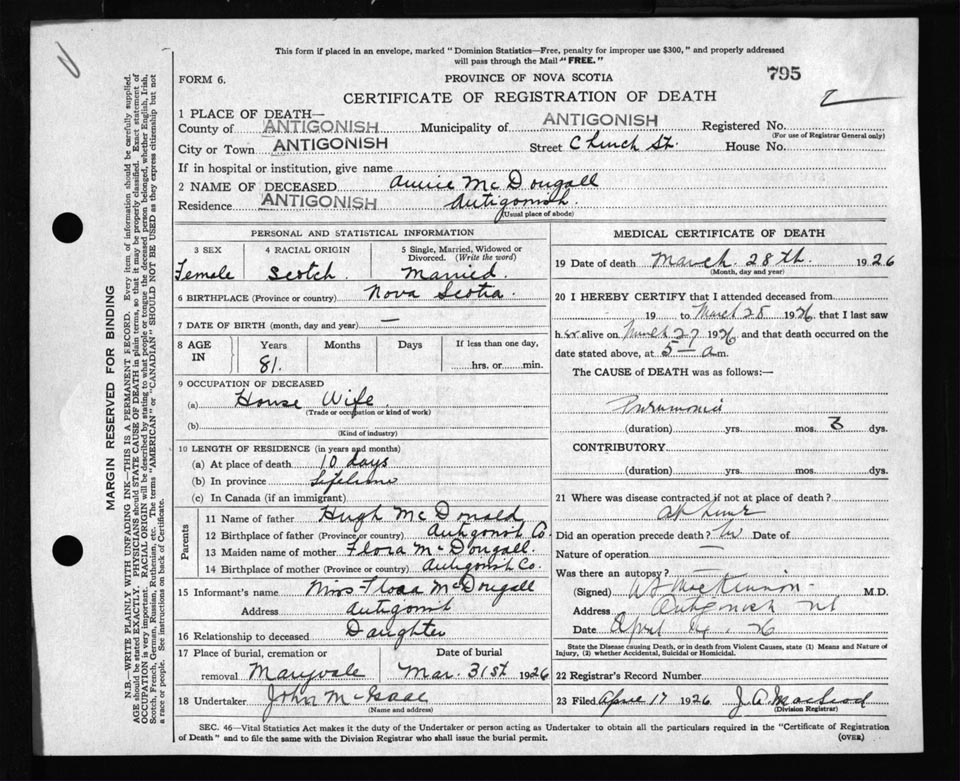 This form if placed in an envelope, marked "Dominion Statistics—Free, penalty for improper use $300," and properly addressed
will pass through the Mail "FREE."
FORM 6.
PROVINCE OF NOVA SCOTIA
795
CERTIFICATE OF REGISTRATION OF DEATH
1 PLACE OF DEATH—
County of ANTIGONISH Municipality of ANTIGONISH Registered No.
(For use of Registrar General only)
City or Town ANTIGONISH Street Church St. House No.
If in hospital or institution, give name
2 NAME OF DECEASED Annie McDougall
Residence ANTIGONISH Antigonish.
(Usual place of abode)
PERSONAL AND STATISTICAL INFORMATION
3 SEX 4 RACIAL ORIGIN 5 Single, Married, Widowed or
Divorced. (Write the word)
Female Scotch Married.
6 BIRTHPLACE (Province or country) Nova Scotia.
7 DATE OF BIRTH (month, day and year) —
8 AGE IN Years Months Days If less than one day,
81. hrs. or min.
9 OCCUPATION OF DECEASED
(a) House Wife
(Trade or occupation or kind of work)
(b)
(Kind of industry)
10 LENGTH OF RESIDENCE (in years and months)
(a) At place of death 10 days
(b) In province Lifetime
(c) In Canada (if an immigrant)
Parents
11 Name of father Hugh McDonald
12 Birthplace of father (Province or country) Antigonish Co.
13 Maiden name of mother Flora McDougall.
14 Birthplace of mother (Province or country) Antigonish Co.
15 Informant's name Miss Flora McDougall
Address Antigonish
16 Relationship to deceased Daughter
17 Place of burial, cremation or Date of burial
removal Maryvale Mar. 31st 1926
18 Undertaker John McIsaac
(Name and address)
MEDICAL CERTIFICATE OF DEATH
19 Date of death March 28th. 1926
(Month, day and year)
20 I HEREBY CERTIFY that I attended deceased from
19 to March 28 1926, that I last saw
her alive on March 27 1926, and that death occurred on
date stated above, at 5 — a.m.
The CAUSE of DEATH was as follows:—
Pneumonia
(duration) yrs. mos. 3 dys.
CONTRIBUTORY
(duration) yrs. mos. dys.
21 Where was disease contracted if not at place of death?
At home
Did an operation precede death? No Date of
Nature of operation —
Was there an autopsy?
(Signed) MacKinnon M.D.
Address Antigonish NS
Date April 26
State the Disease causing Death, or in death from Violent Causes, state (1) Means and Nature of
Injury, (2) whether Accidental, Suicidal or Homicidal.
22 Registrar's Record Number
23 Filed April 17 1926 J. A. MacLeod
(Division Registrar)
SEC. 46—Vital Statistics Act makes it the duty of the Undertaker or person acting as Undertaker to obtain all the particulars required in the "Certificate of Registration
of Death" and to file the same with the Division Registrar who shall issue the burial permit.
(OVER)
MARGIN RESERVED FOR BINDING
N.B.—WRITE PLAINLY WITH UNFADING INK—THIS IS A PERMANENT RECORD. Every item of information should be carefully supplied.
AGE should be stated EXACTLY. PHYSICIANS should STATE CAUSE OF DEATH in plain terms, so that it may be properly classified. Exact statement of
OCCUPATION is very important. RACIAL ORIGIN will be described by stating to what people or tongue the deceased person belonged, whether English, Irish,
Scotch, French, German, Russian, Ruthenian, etc. The terms "AMERICAN" or "CANADIAN" SHOULD NOT BE USED as they express citizenship but not
a race or people. See instructions on back of Certificate.